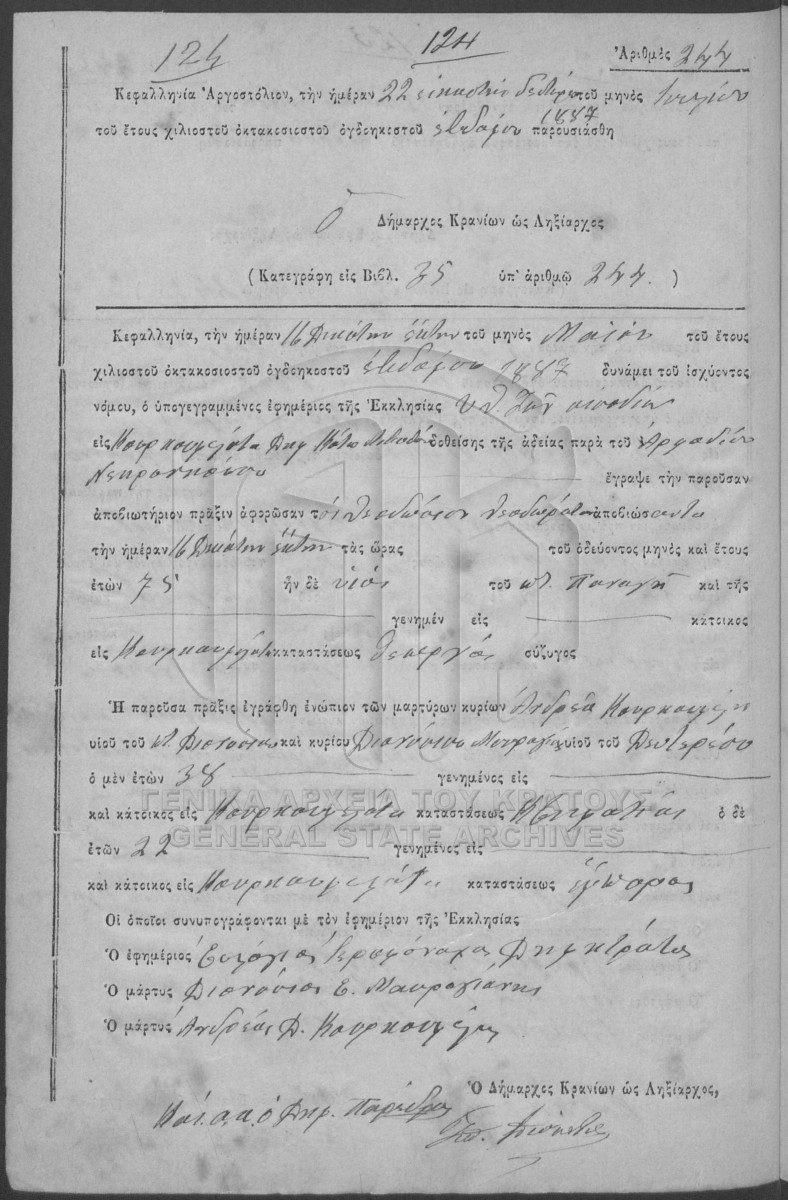 124 124 Ἀριθμὸς 244
Κεφαλληνία Ἀργοστόλιον, τὴν ἡμέραν 22 εἰκοστὴν δευτέραν τοῦ μηνὸς Ἰουνίου
τοῦ ἔτους χιλιοστοῦ ὀκτακοσιοστοῦ ὀγδοηκοστοῦ ἑβδόμου 1887 παρουσιάσθη
Ὁ Δήμαρχος Κρανίων ὡς Ληξίαρχος
(Κατεγράφη εἰς Βιβλ. 35 ὑπ' ἀριθμῷ 244.)
Κεφαλληνία, τὴν ἡμέραν 16 Δεκάτην ἕκτην τοῦ μηνὸς Μαΐου τοῦ ἔτους
χιλιοστοῦ ὀκτακοσιοστοῦ ὀγδοηκοστοῦ ἑβδόμου 1887 δυνάμει τοῦ ἰσχύοντος
νόμου, ὁ ὑπογεγραμμένος ἐφημέριος τῆς Ἐκκλησίας
εἰς Κουρκουμελάτα Δημ δοθείσης τῆς ἀδείας παρὰ τοῦ
ἔγραψε τὴν παροῦσαν
ἀποβιωτήριον πρᾶξιν ἀφορῶσαν τὸν Θεόδωρον Θεοδωράτον ἀποβιώσαντα
τὴν ἡμέραν 16 Δεκάτην ἕκτην τὰς ὥρας τοῦ ὁδεύοντος μηνὸς καὶ ἔτους
ἐτῶν 75 ἦν δὲ υἱὸς τοῦ ποτ. Παναγῆ καὶ τῆς
γενημέν εἰς κάτοικος
εἰς Κουρκουμελάτα καταστάσεως γεωργὸς σύζυγος
Ἡ παροῦσα πρᾶξις ἐγράφθη ἐνώπιον τῶν μαρτύρων κυρίων Ἀνδρέα Κουρκουμέλη
υἱοῦ τοῦ ποτ. Διονυσίου καὶ κυρίου Διονύσιου Μαυρογιάννη υἱοῦ τοῦ
ὁ μὲν ἐτῶν 38 γενημένος εἰς
καὶ κάτοικος εἰς Κουρκουμελάτα καταστάσεως Κτηματίας ὁ δὲ
ΓΕΝΙΚΑ ΑΡΧΕΙΑ ΤΟΥ ΚΡΑΤΟΥΣ
GENERAL STATE ARCHIVES
ἐτῶν 22 γενημένος εἰς
καὶ κάτοικος εἰς Κουρκουμελάτα καταστάσεως ἔμπορος
Οἱ ὁποῖοι συνυπογράφονται μὲ τὸν ἐφημέριον τῆς Ἐκκλησίας
Ὁ ἐφημέριος Εὐλόγιος Ἱερομόναχος Δημητράτος
Ὁ μάρτυς Διονύσιος Ε. Μαυρογιάνης
Ὁ μάρτυς Ἀνδρέας Δ. Κουρκουμέλης
Ὁ Δήμαρχος Κρανίων ὡς Ληξίαρχος,
ὁ Δημ. Πάρεδρος